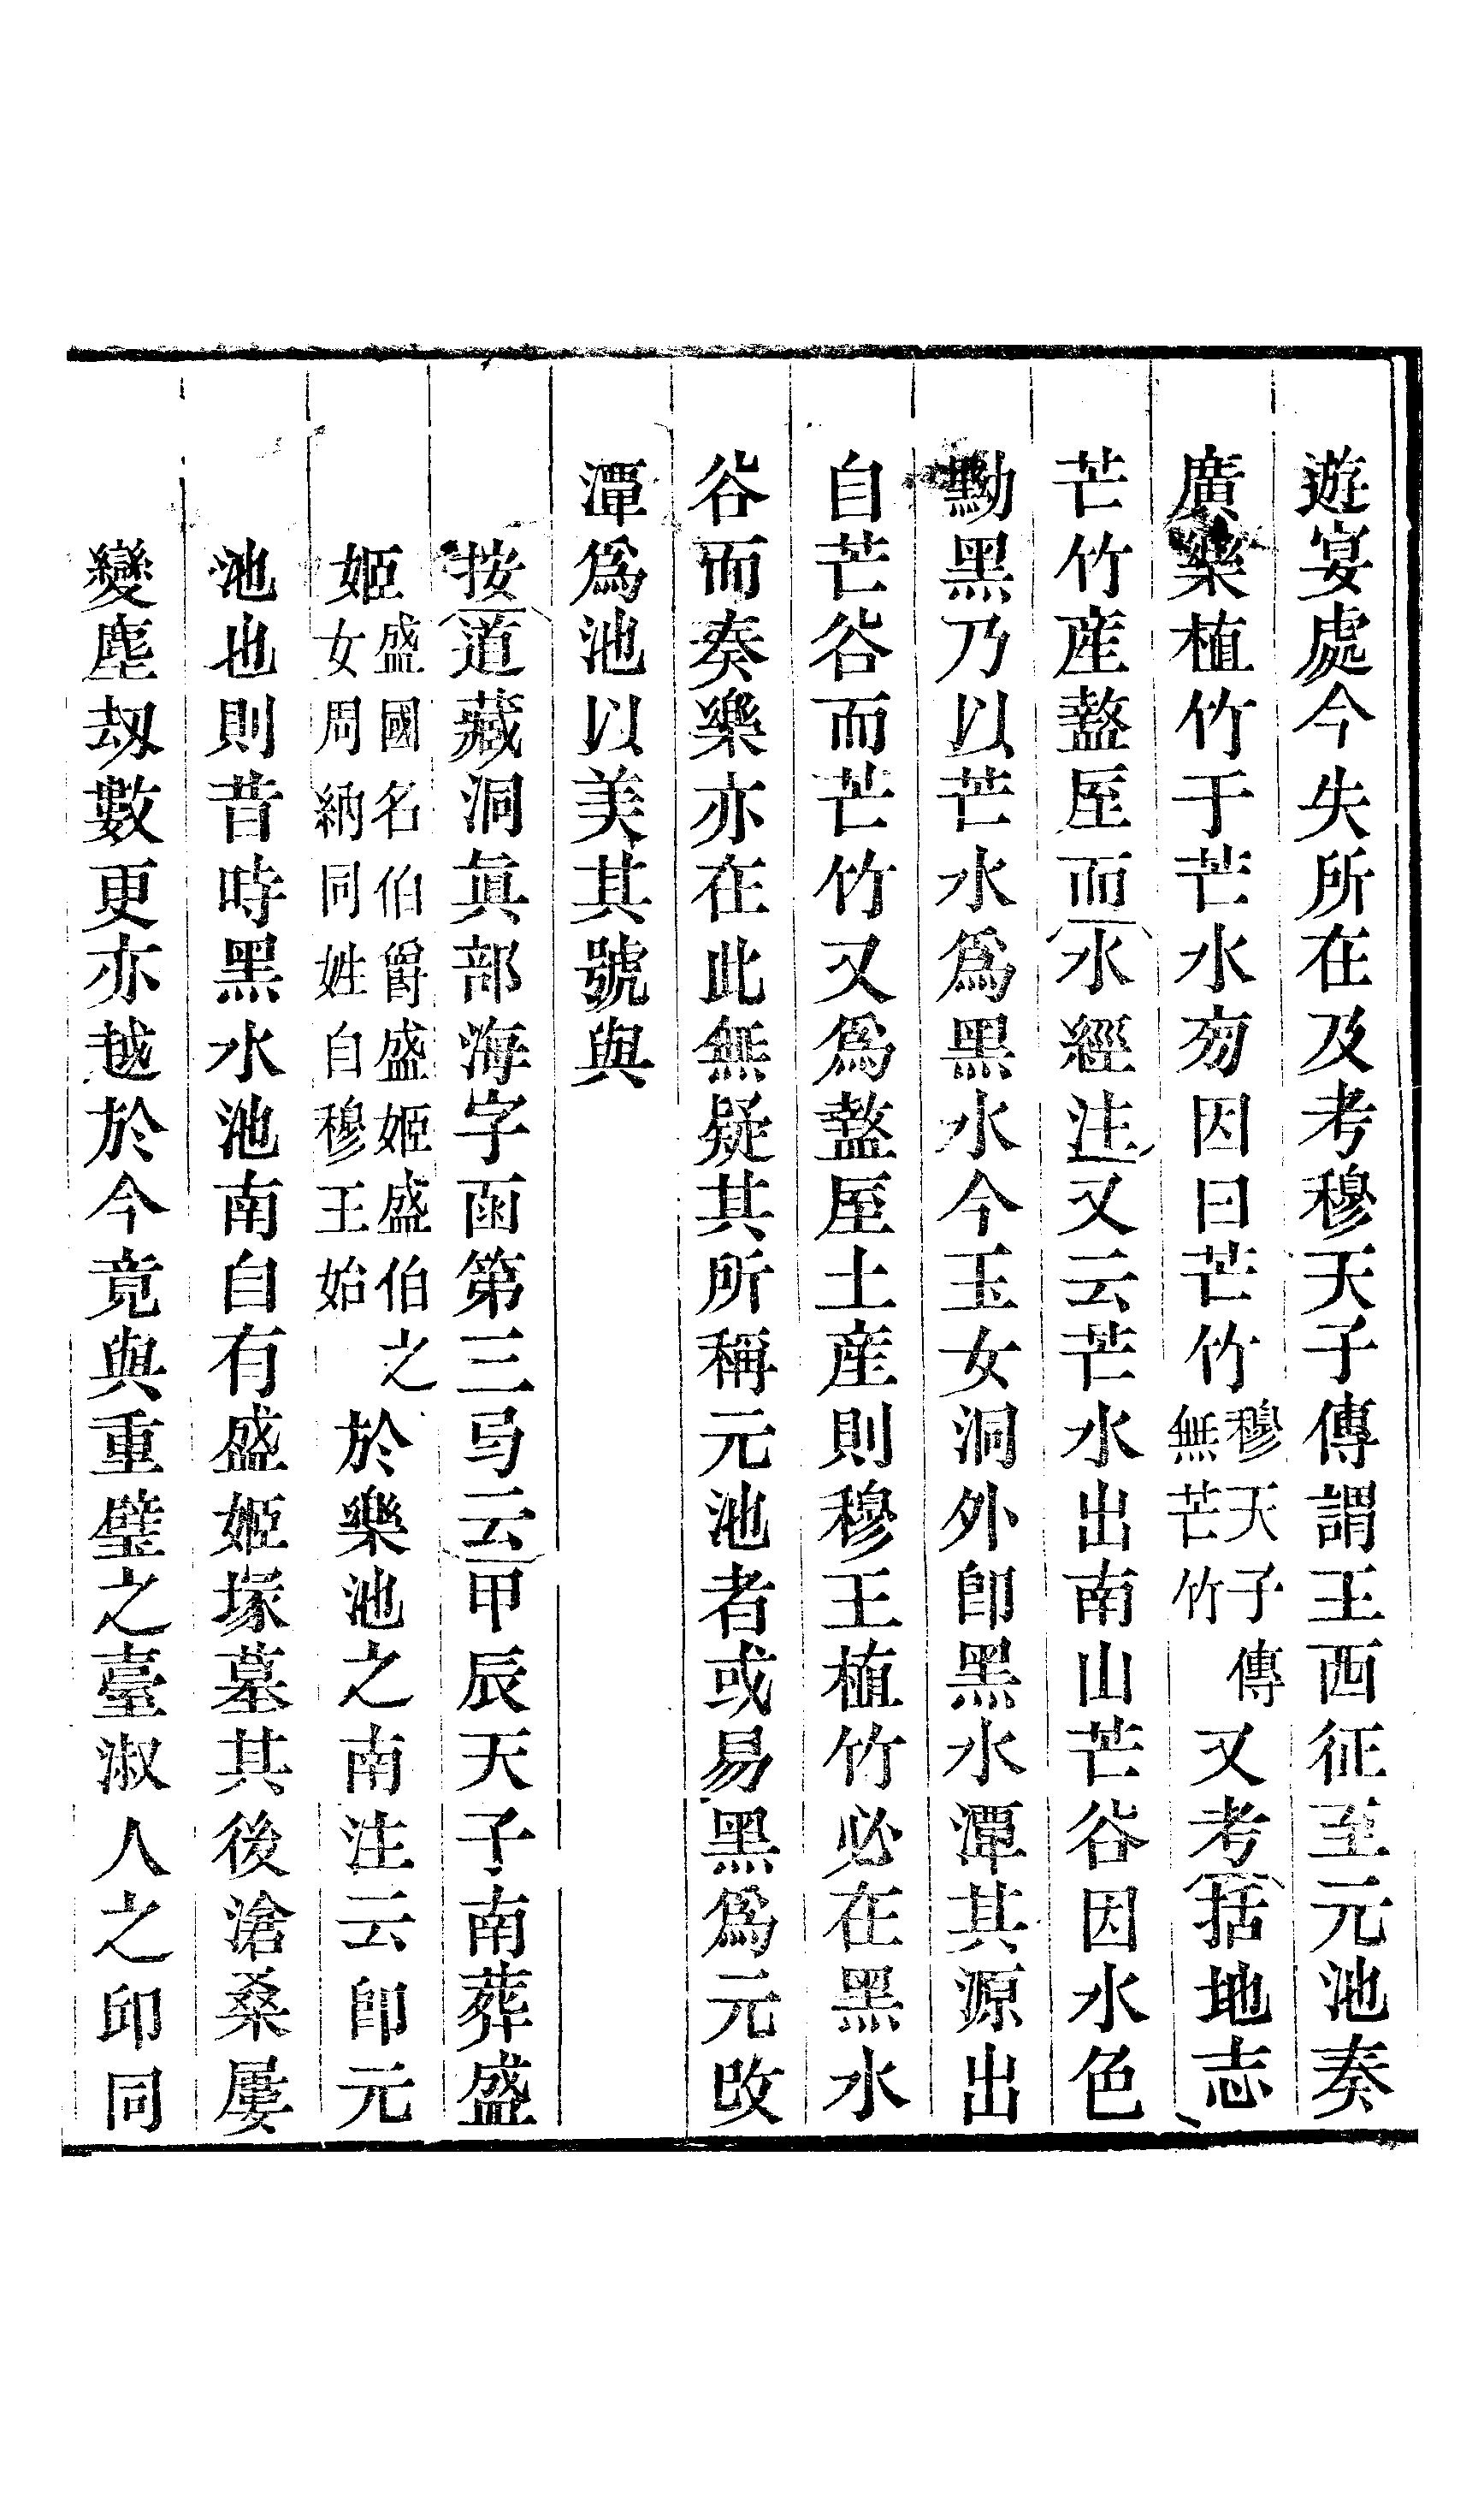 遊宴處今失所在及考穆天子傳謂王西征至元池奏
廣樂植竹于芒水㫄因曰芒竹穆天子傳無芒竹又考括地志
芒竹産盩厔而水經注又云芒水出南山芒谷因水色
黝黑乃以芒水爲黑水今玉女洞外卽黑水潭其源出
自芒谷而芒竹又爲盩厔土産則穆王植竹必在黑水
谷而奏樂亦在此無疑其所稱元池者或易黑爲元改
潭爲池以美其號與
按道藏洞眞部海字函第三弓云甲辰天子南葬盛
姬盛國名伯爵盛姬盛伯之女周納同姓自穆王始於樂池之南注云卽元
池也則昔時黑水池南自有盛姬塚墓其後滄桑屢
變塵刼數更亦越於今竟與重璧之臺淑人之印同